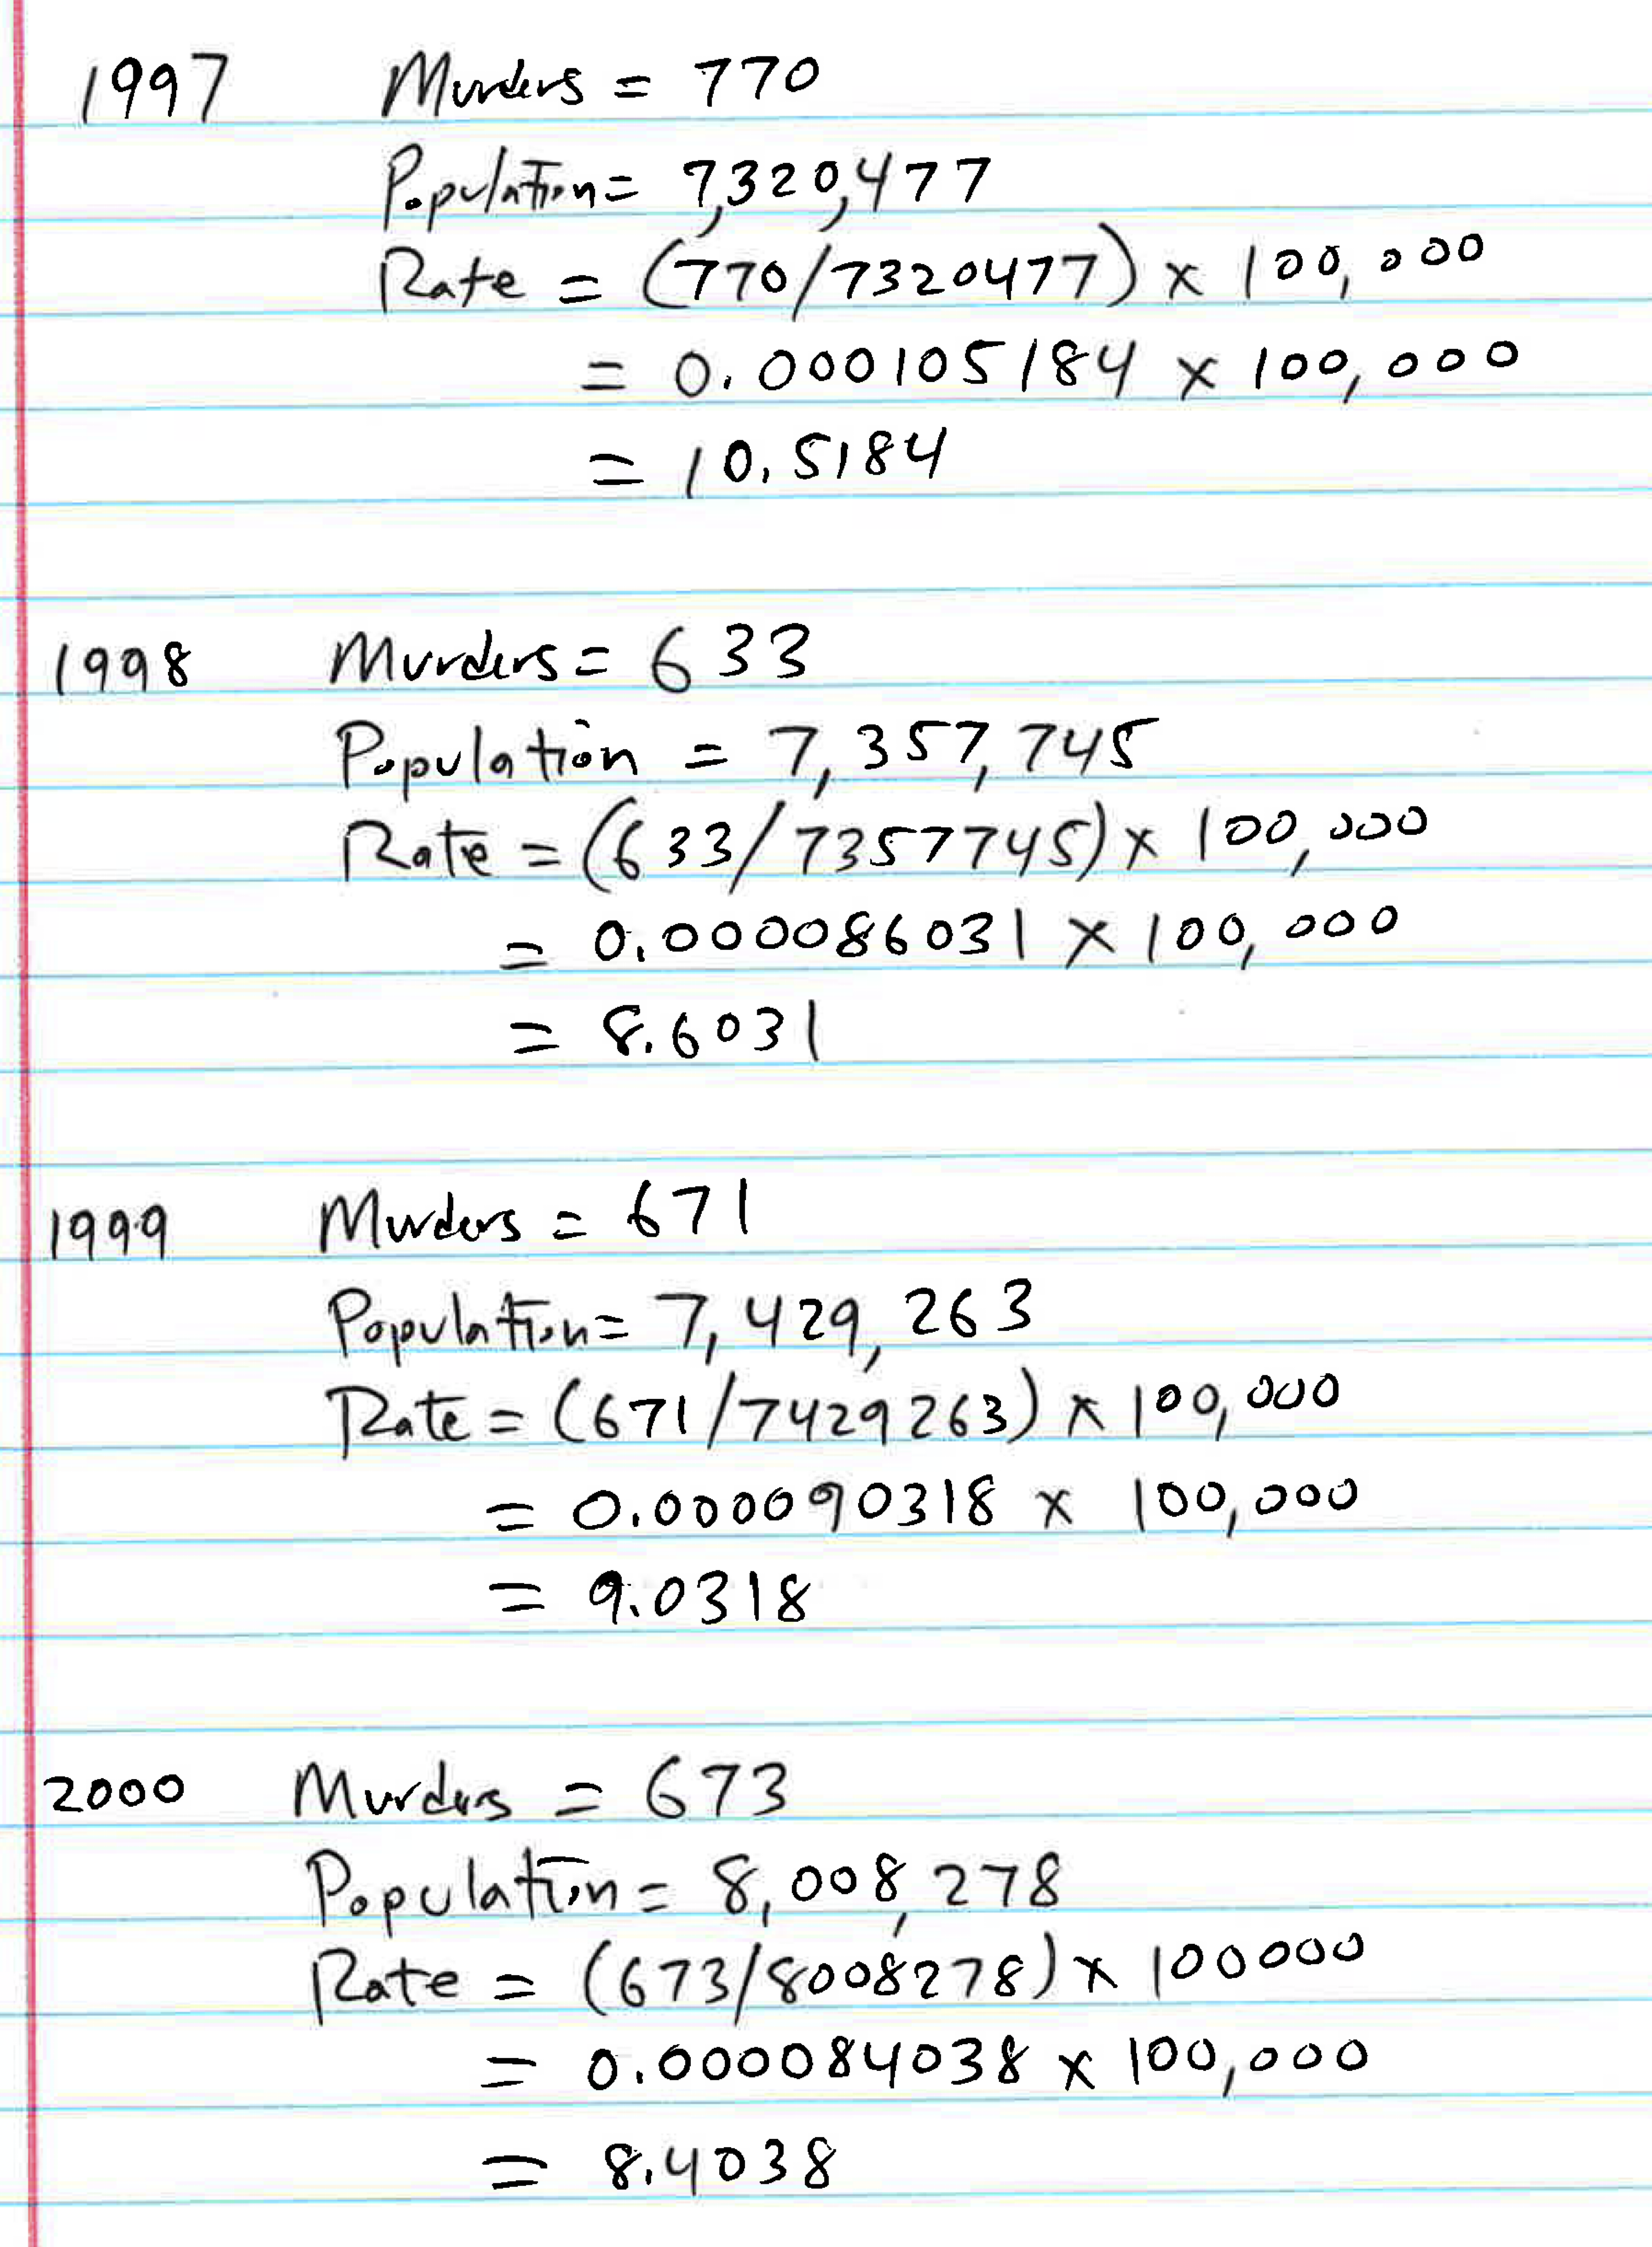 1997 Murders = 770
Population = 7,320,477
Rate = (770/7320477) x 100,000
= 0.000105184 x 100,000
= 10.5184
1998 Murders = 633
Population = 7,357,745
Rate = (633/7357745) x 100,000
= 0.000086031 x 100,000
= 8.6031
1999 Murders = 671
Population = 7,429,263
Rate = (671/7429263) x 100,000
= 0.000090318 x 100,000
= 9.0318
2000 Murders = 673
Population = 8,008,278
Rate = (673/8008278) x 100000
= 0.000084038 x 100,000
= 8.4038